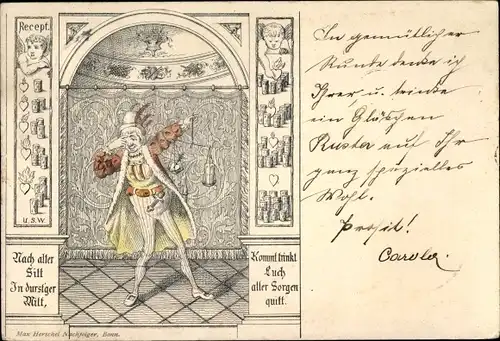 Recept.
u.s.w.
Nach alter
Sitt
In durstger
Mitt,
Kommt trinkt
Euch
aller Sorgen
quitt.
Max Herschel Nachfolger, Bonn.
In gemütlicher
Runde denke ich
Ihrer u. trinke
ein Gläschen
Ruster auf Ihr
ganz spezielles
Wohl.
Prosit!
Carola.